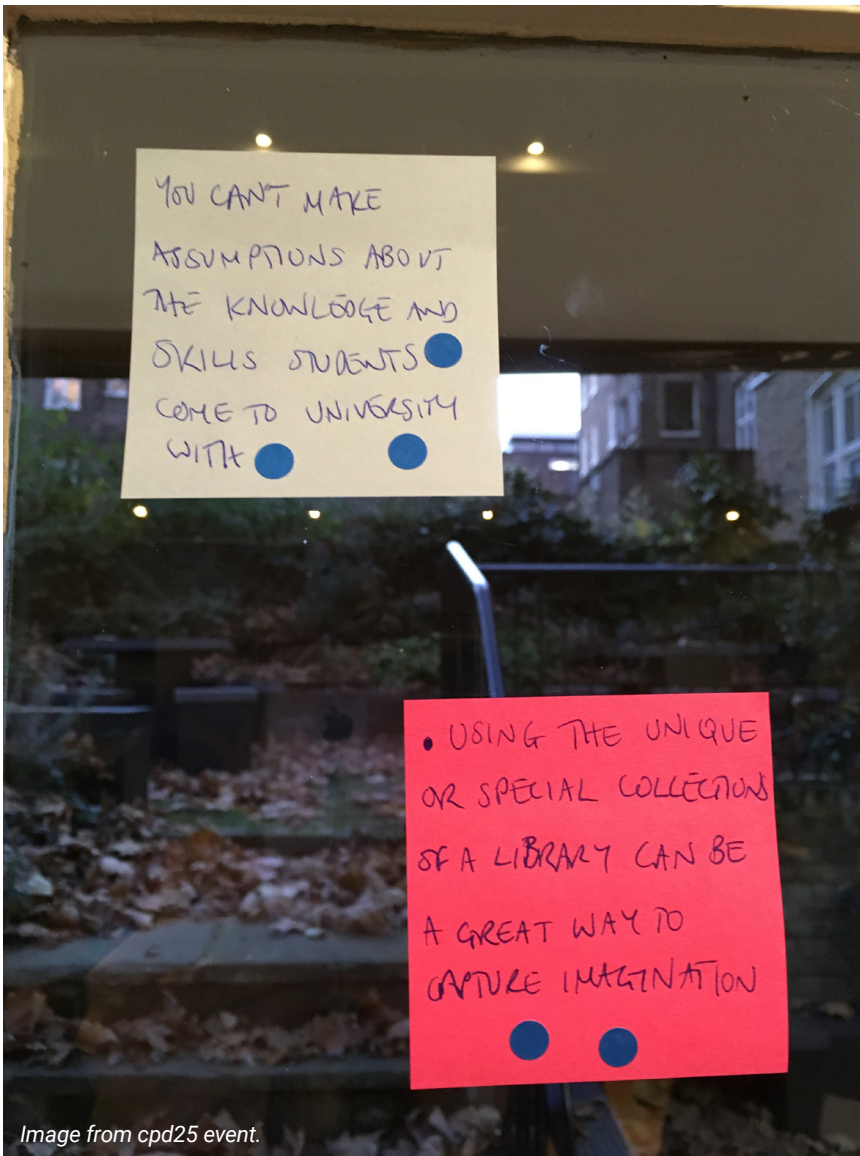 YOU CAN'T MAKE
ASSUMPTIONS ABOUT
THE KNOWLEDGE AND
SKILLS STUDENTS
COME TO UNIVERSITY
WITH
• USING THE UNIQUE
OR SPECIAL COLLECTIONS
OF A LIBRARY CAN BE
A GREAT WAY TO
CAPTURE IMAGINATION
Image from cpd25 event.